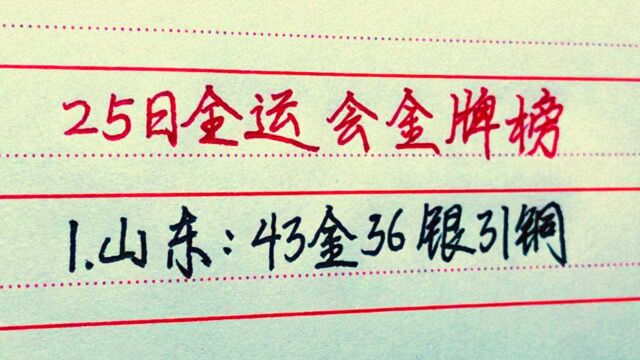 25日全运会金牌榜
1.山东:43金36银31铜